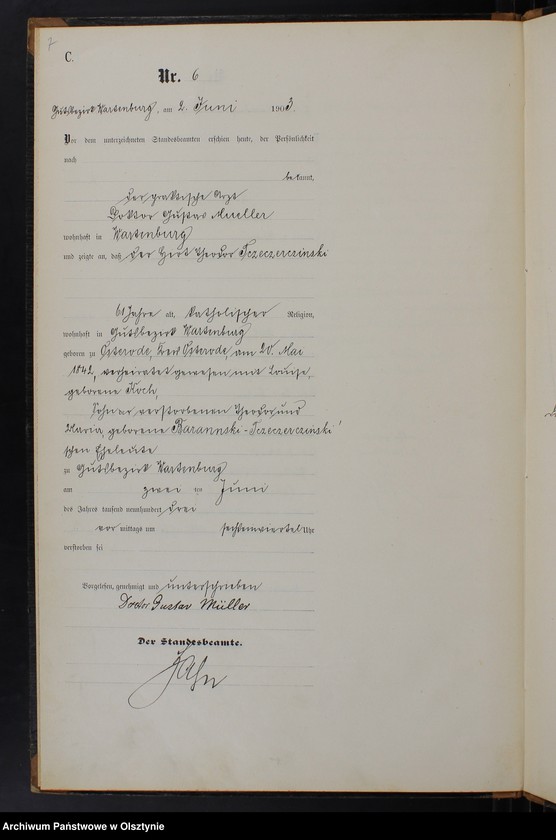 7
C.
Nr. 6
Gutsbezirk Wartenburg, am 2. Juni 1903.
Vor dem unterzeichneten Standesbeamten erschien heute, der Persönlichkeit
nach
bekannt,
der praktische Arzt
Doktor Gustav Mueller
wohnhaft in Wartenburg
und zeigte an, daß der Hirt Theodor Tzeczerczinski
61 Jahre alt, katholischer Religion,
wohnhaft in Gutsbezirk Wartenburg
geboren zu Osterode, Kreis Osterode, am 20. Mai
1842, verheiratet gewesen mit Louise,
geborene Koch,
Sohn der verstorbenen Theodor und
Maria, geborene Barannski-Tzeczerczinski'
schen Eheleute
zu Gutsbezirk Wartenburg
am zwei ten Juni
des Jahres tausend neunhundert drei
vor mittags um Uhr
verstorben sei
Vorgelesen, genehmigt und unterschrieben
Doctor Gustav Müller
Der Standesbeamte.
Jahn
Archiwum Państwowe w Olsztynie